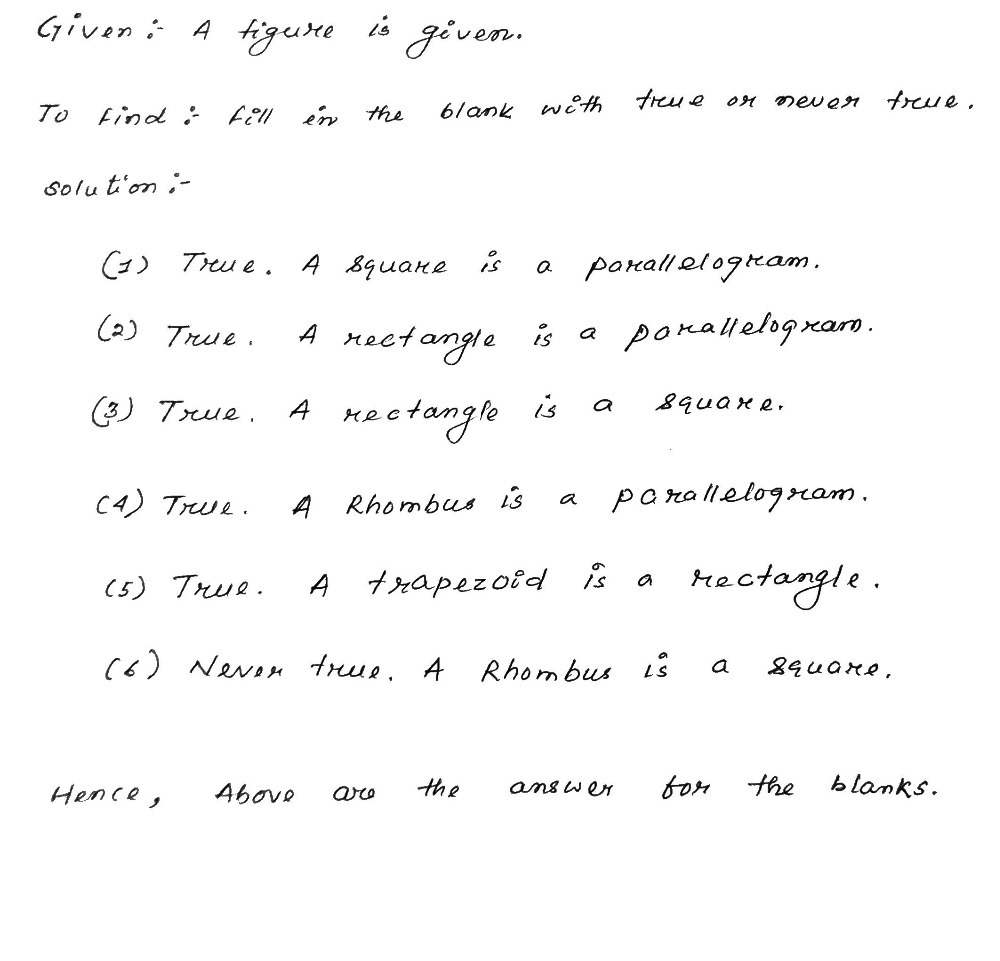 Given :- A figure is given.
To find :- fill in the blank with true or never true.
Solution :-
(1) True. A square is a parallelogram.
(2) True. A rectangle is a parallelogram.
(3) True. A rectangle is a square.
(4) True. A Rhombus is a parallelogram.
(5) True. A trapezoid is a rectangle.
(6) Never true. A Rhombus is a square.
Hence, Above are the answer for the blanks.